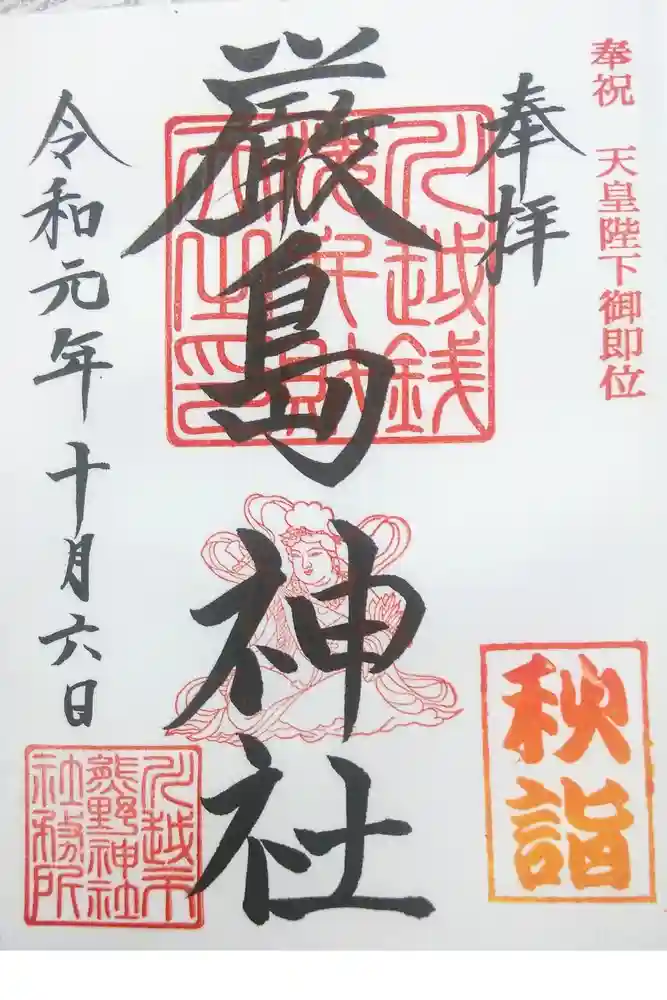 奉祝 天皇陛下御即位
奉拝
川越銭
洗弁財
天之印
厳島神社
秋詣
令和元年十月六日
川越市
熊野神社
社務所